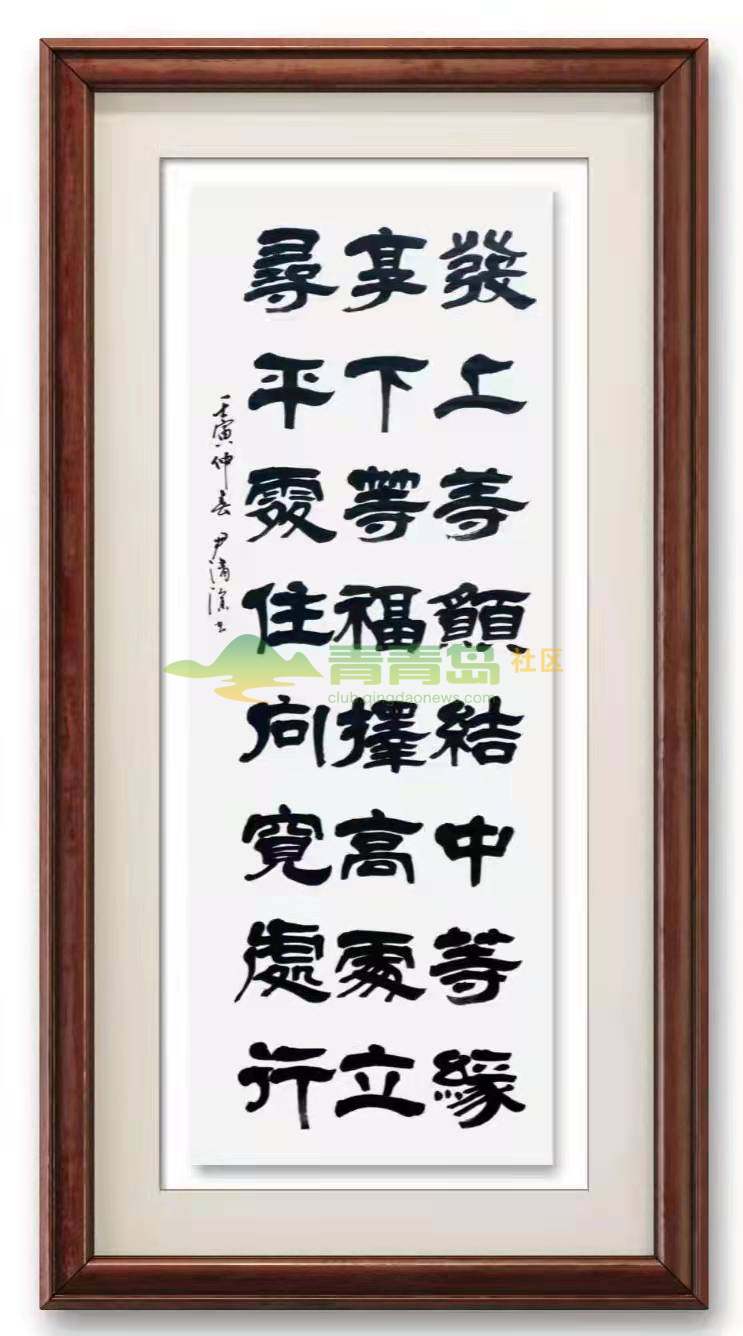 發上等願結中等緣
享下等福擇高處立
尋平處住向寬處行
壬寅仲春 尹清深书
青青岛社区
club.qingdaonews.com